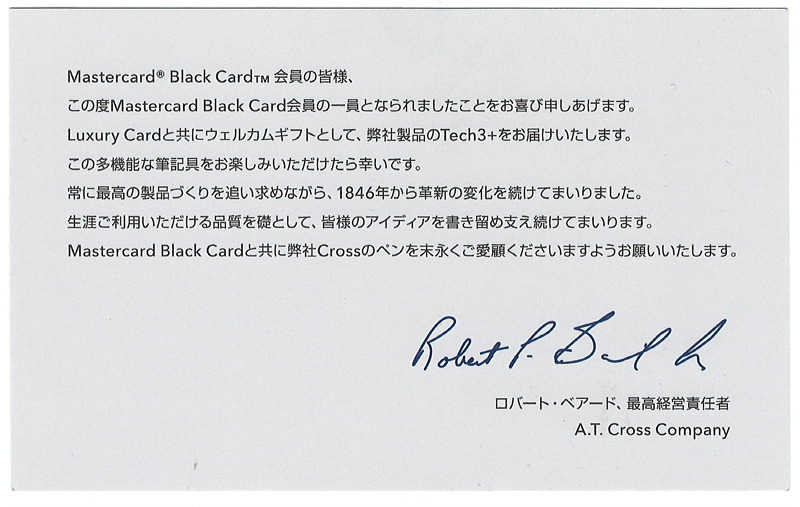 Mastercard® Black Card™ 会員の皆様、
この度Mastercard Black Card会員の一員となられましたことをお喜び申しあげます。
Luxury Cardと共にウェルカムギフトとして、弊社製品のTech3+をお届けいたします。
この多機能な筆記具をお楽しみいただけたら幸いです。
常に最高の製品づくりを追い求めながら、1846年から革新の変化を続けてまいりました。
生涯ご利用いただける品質を礎として、皆様のアイディアを書き留め支え続けてまいります。
Mastercard Black Cardと共に弊社Crossのペンを末永くご愛顧くださいますようお願いいたします。
Robert P.
ロバート・ベアード、最高経営責任者
A.T. Cross Company